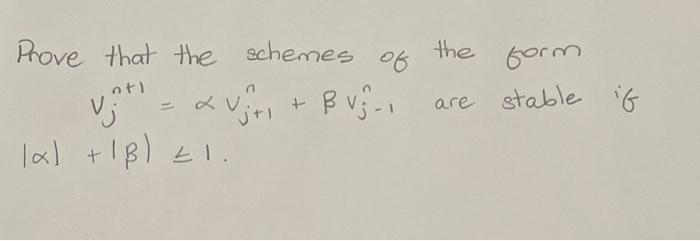 Prove that the schemes of the form
v_j^{n+1} = α v_{j+1}^n + β v_{j-1}^n are stable if
|α| + |β| ≤ 1.